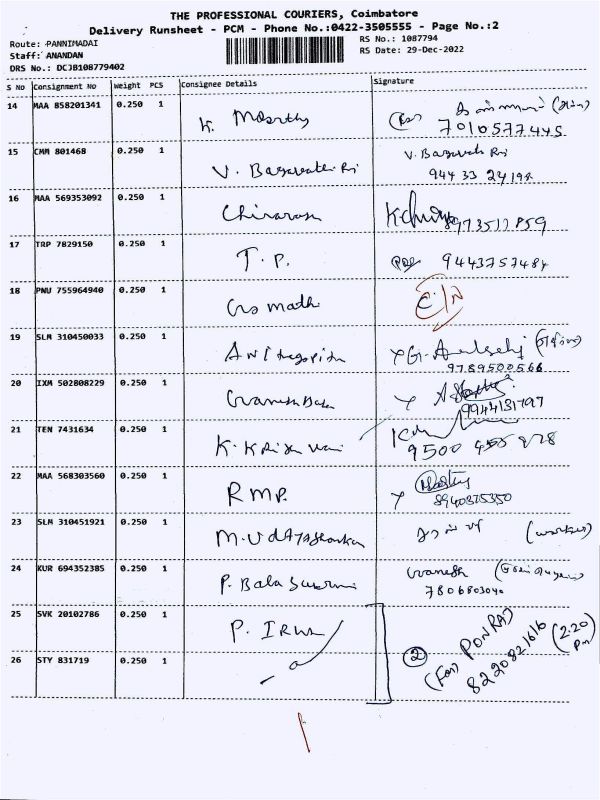 THE PROFESSIONAL COURIERS, Coimbatore
Delivery Runsheet - PCM - Phone No.:0422-3505555 - Page No.:2
Route: PANNIMADAI
RS No.: 1087794
Staff: ANANDAN
RS Date: 29-Dec-2022
DRS No.: DCJB108779402
S No Consignment No Weight PCS Consignee Details Signature
14 MAA 858201341 0.250 1 K. Moorthy
7010577445
15 CMM 801468 0.250 1 V. Bagavathi Raj V. Bagavathi Raj
16 MAA 569353092 0.250 1
17 TRP 7829150 0.250 1 T. P. 9443757484
18 PNU 755964940 0.250 1 Gomathi C/N
19 SLM 310450033 0.250 1
9789500566
20 IXM 502808229 0.250 1
9944131797
21 TEN 7431634 0.250 1 K. Krishnaveni
22 MAA 568303560 0.250 1 RMP.
8940875350
23 SLM 310451921 0.250 1 M. Udayashankar
24 KUR 694352385 0.250 1 P. Bala Subramani Ganesh
7806803040
25 SVK 20102786 0.250 1
26 STY 831719 0.250 1
2 (For) PONRAJ
8220821616 (2.20 pm)